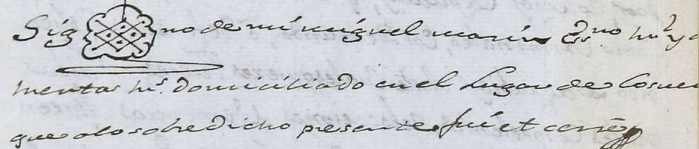 Sig no de mi miguel marin Es.no m.r y a
mentas m.r domiciliado en el Lugar de Cosuen
que a lo sobredicho presente fui et cerré